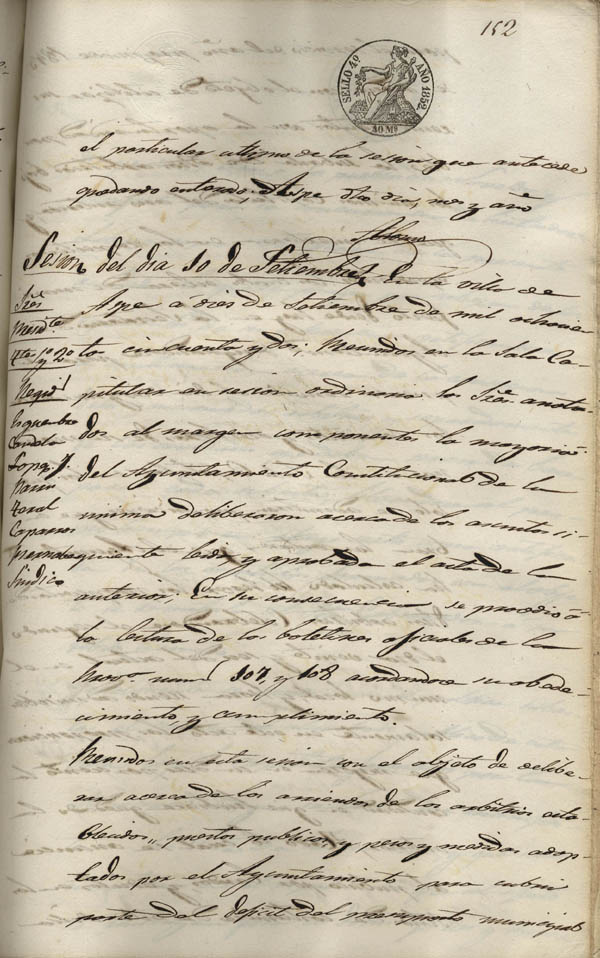 152
SELLO 4º AÑO 1852
40 Ms
el particular ultimo de la sesion que antecede
quedando enterado, Aspe dho dia, mes y año
Sesion del dia 10 de Setiembre En la villa de
Aspe a dies de Setiembre de mil ochocien
to cincuenta y dos; Reunidos en la Sala Ca-
pitular en sesion ordinaria los Sres. anota-
dos al margen componentes la mayoria
del Ayuntamiento Constitucional de la
misma deliberaron acerca de los asuntos si-
guiente leida y aprobada el acta de la
anterior; En su consecuencia se procedió á
la lectura de los boletines oficiales de la
Provª numˢ 107 y 108 acordandose su obede-
cimiento y cumplimiento.
Reunidos en esta sesion con el objeto de delibe-
rar acerca de los arriendos de los arbitrios esta-
blecidos, puestos publicos y pesos y medidas adop-
tados por el Ayuntamiento para cubrir
parte del deficit del presupuesto municipal
Sres
Presidte
4tes 1º y 2º
Regid
Erquembre
Lopez J.
Caparros
Sindico